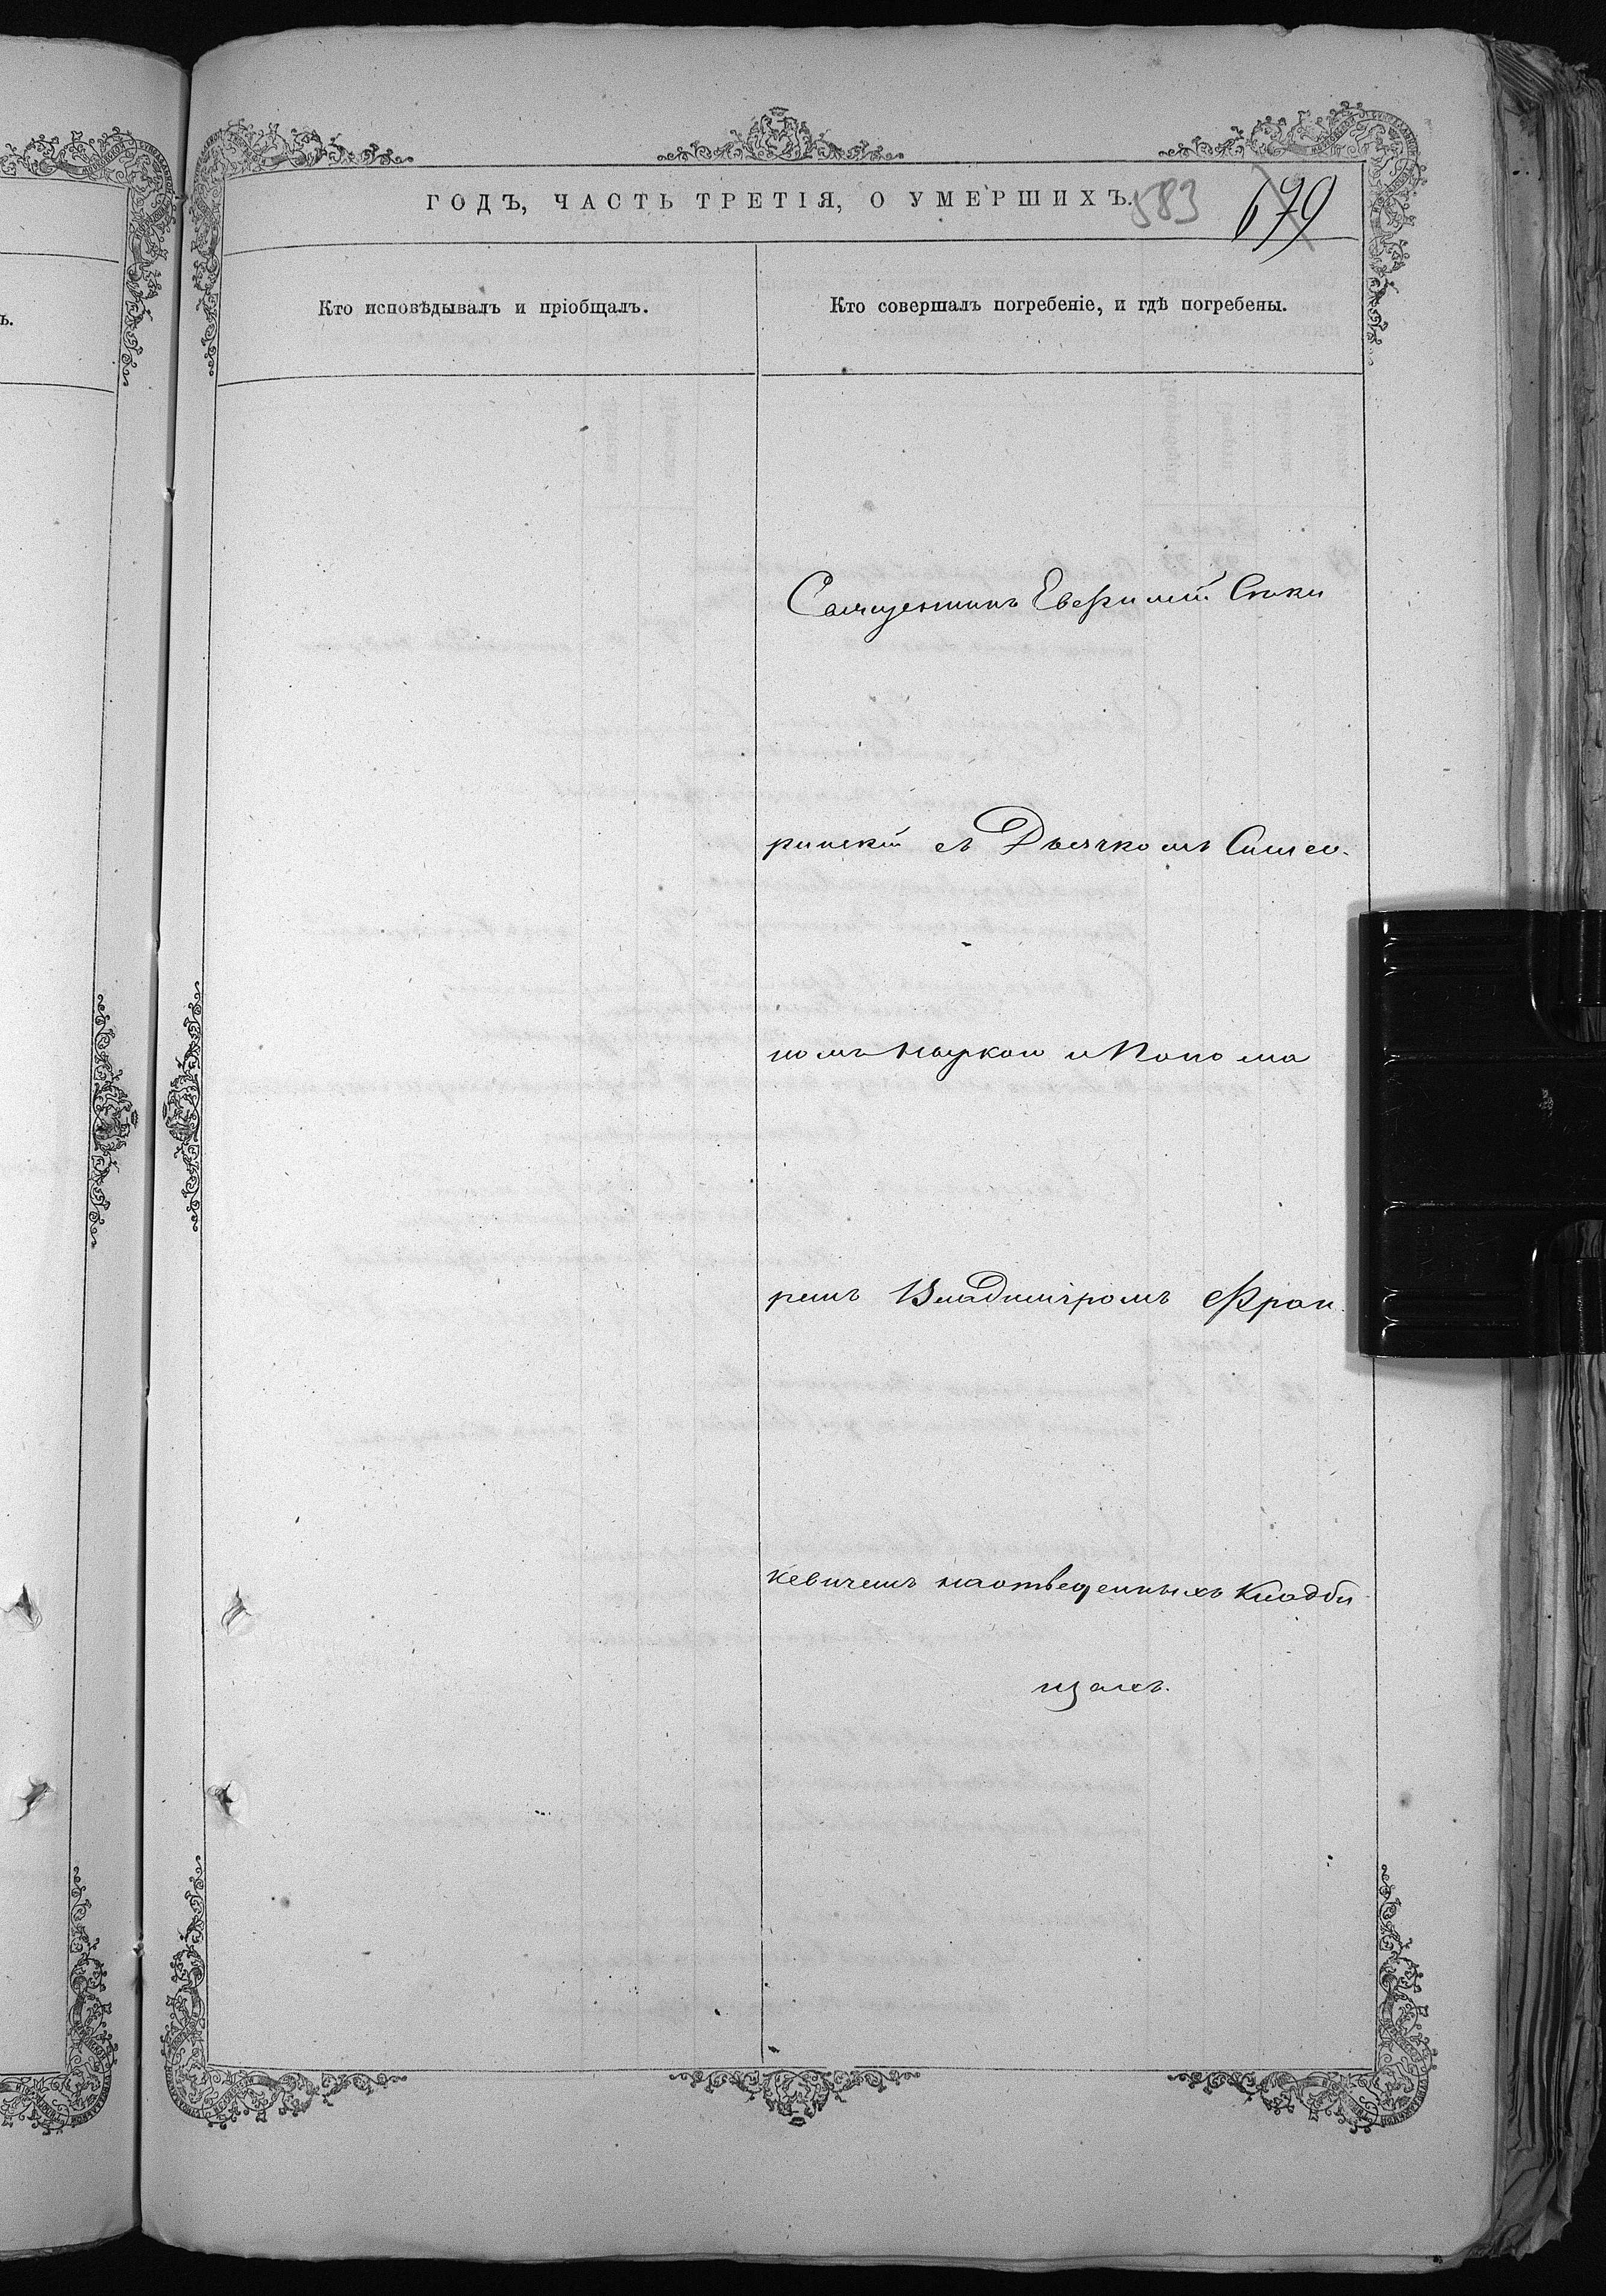 ГОДЪ, ЧАСТЬ ТРЕТІЯ, О УМЕРШИХЪ.
583
679
Кто исповѣдывалъ и пріобщалъ.
Кто совершалъ погребеніе, и гдѣ погребены.
ъ.
Священникъ Евфимій
ринскій съ Дьячкомъ Симео-
номъ и Понома
ремъ Владиміромъ Фран
кевичемъ на отведенныхъ кладби
щахъ.